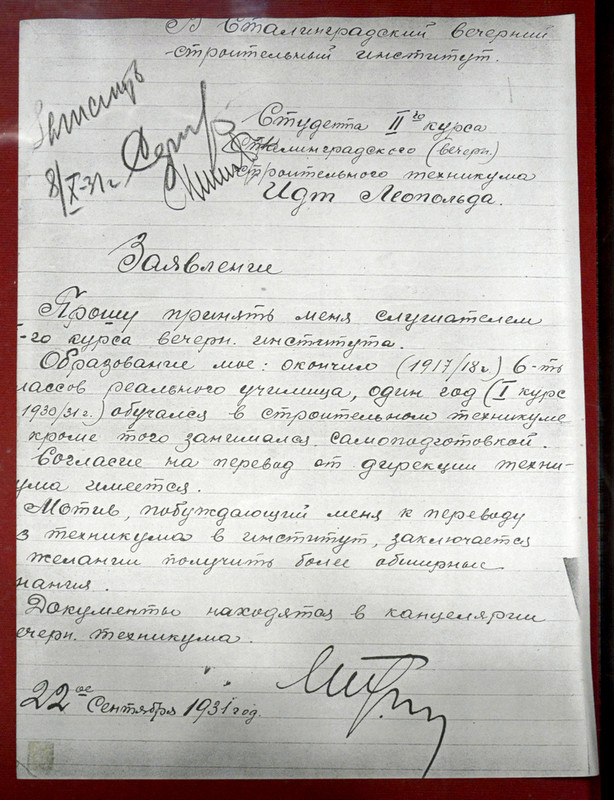 В Сталинградский вечерний
-строительный институт.
Зачислить
8/X-31г.
Студента II го курса
Сталинградского (вечерн.)
строительного техникума
Идт Леопольда.
Заявление
Прошу принять меня слушателем
I-го курса вечерн. института.
Образование мое: окончило (1917/18г.) 6-ть
лассов реального училища, один год (I курс
1930/31г.) обучался в строительном техникуме
кроме того занимался самоподготовкой.
Согласие на перевод от дирекции техни-
ума имеется.
Мотив, побуждающий меня к переводу
з техникума в институт, заключается
желании получить более обширные
нания.
Документы находятся в канцелярии
ечерн. техникума.
22ое Сентября 1931 год.